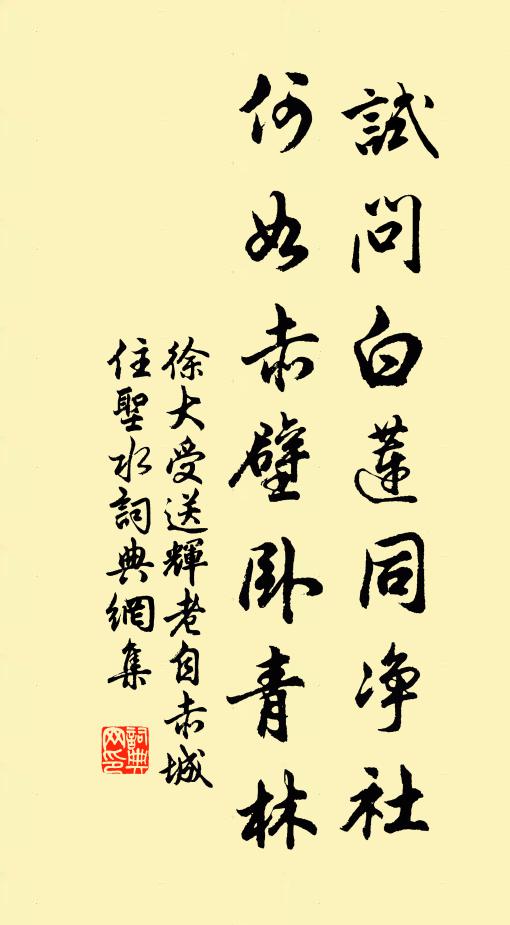 試問白蓮同净社
何如赤壁卧青林
徐大受送輝老自赤城
住聖水詞典網集
詞典
网印